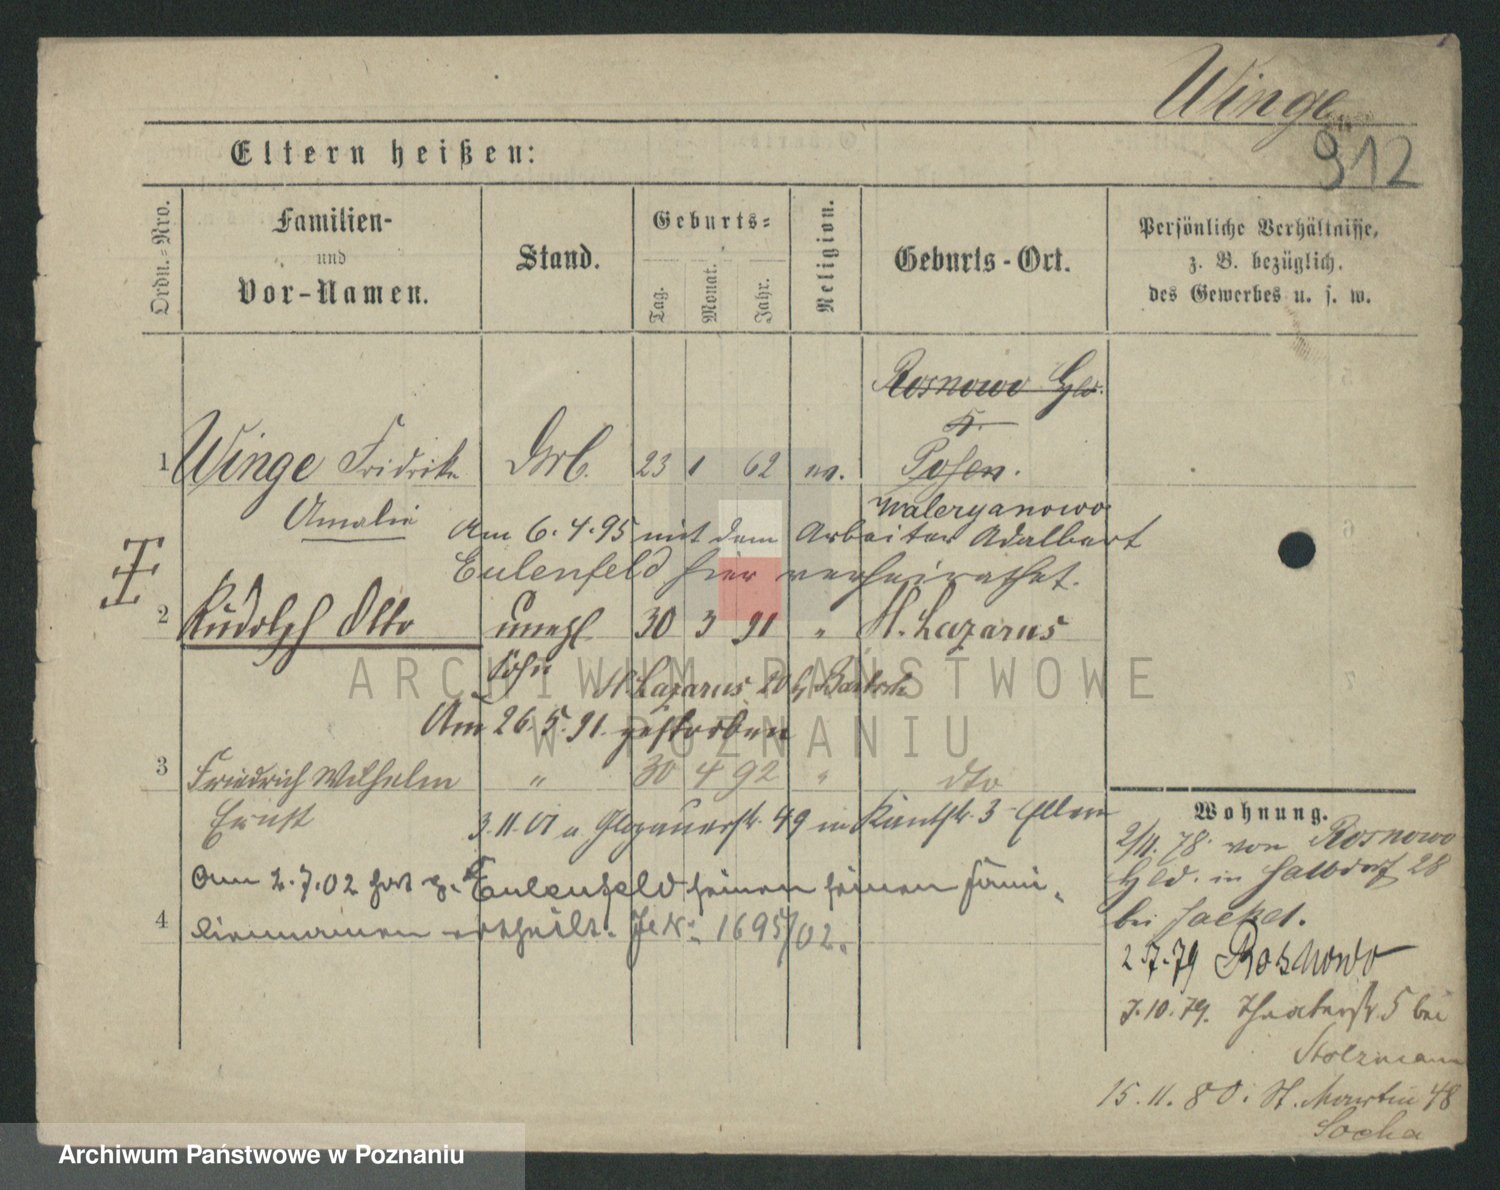 Winge
912
Eltern heißen:
Ordn.-Nro.
Familien-
und
Vor-Namen.
Stand.
Geburts-
Tag.
Monat.
Jahr.
Religion.
Geburts-Ort.
Persönliche Verhältnisse,
z. B. bezüglich.
des Gewerbes u. s. w.
Rosnowo Hld.
1 Winge Fridrike 23 1 62 ev. Posen.
Amalie
Waleryanowo
Am 6.4.95 mit dem Arbeiter Adalbert
Eulenfeld hier verheirathet.
2 Rudolph Otto unehl 30 3 91 " St. Lazarus
Sohn St Lazarus 20 b/ Bartsch
Am 26.5.91. gestorben
3 Friedrich Wilhelm " 30 4 92 " dto
Ernst
3.11.01 a Glogauerstr. 49 in Kantstr. 3 Eltern
Am 2.7.02 hat p. Eulenfeld seinen fami-
4 liennamen ertheilt. 1695/02.
Wohnung.
2/11. 78. von Rosnowo
Hld. in Halbdorf 28
bei Jackel.
79 Rosnowo
7.10.79. Theaterstr. 5 bei
Stolzmann
15.11.80. St. Martin 48
Socha
ARCHIWUM PAŃSTWOWE
W POZNANIU
Archiwum Państwowe w Poznaniu